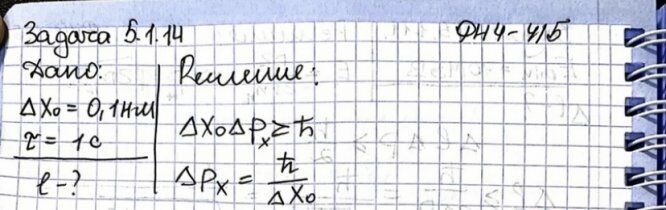 Задача 5.1.14 ФН4-41Б
Дано:
Δx₀ = 0,1нм
τ = 1 с
l - ?
Решение:
Δx₀ΔPₓ ≥ ħ
ΔPₓ = ħ / Δx₀